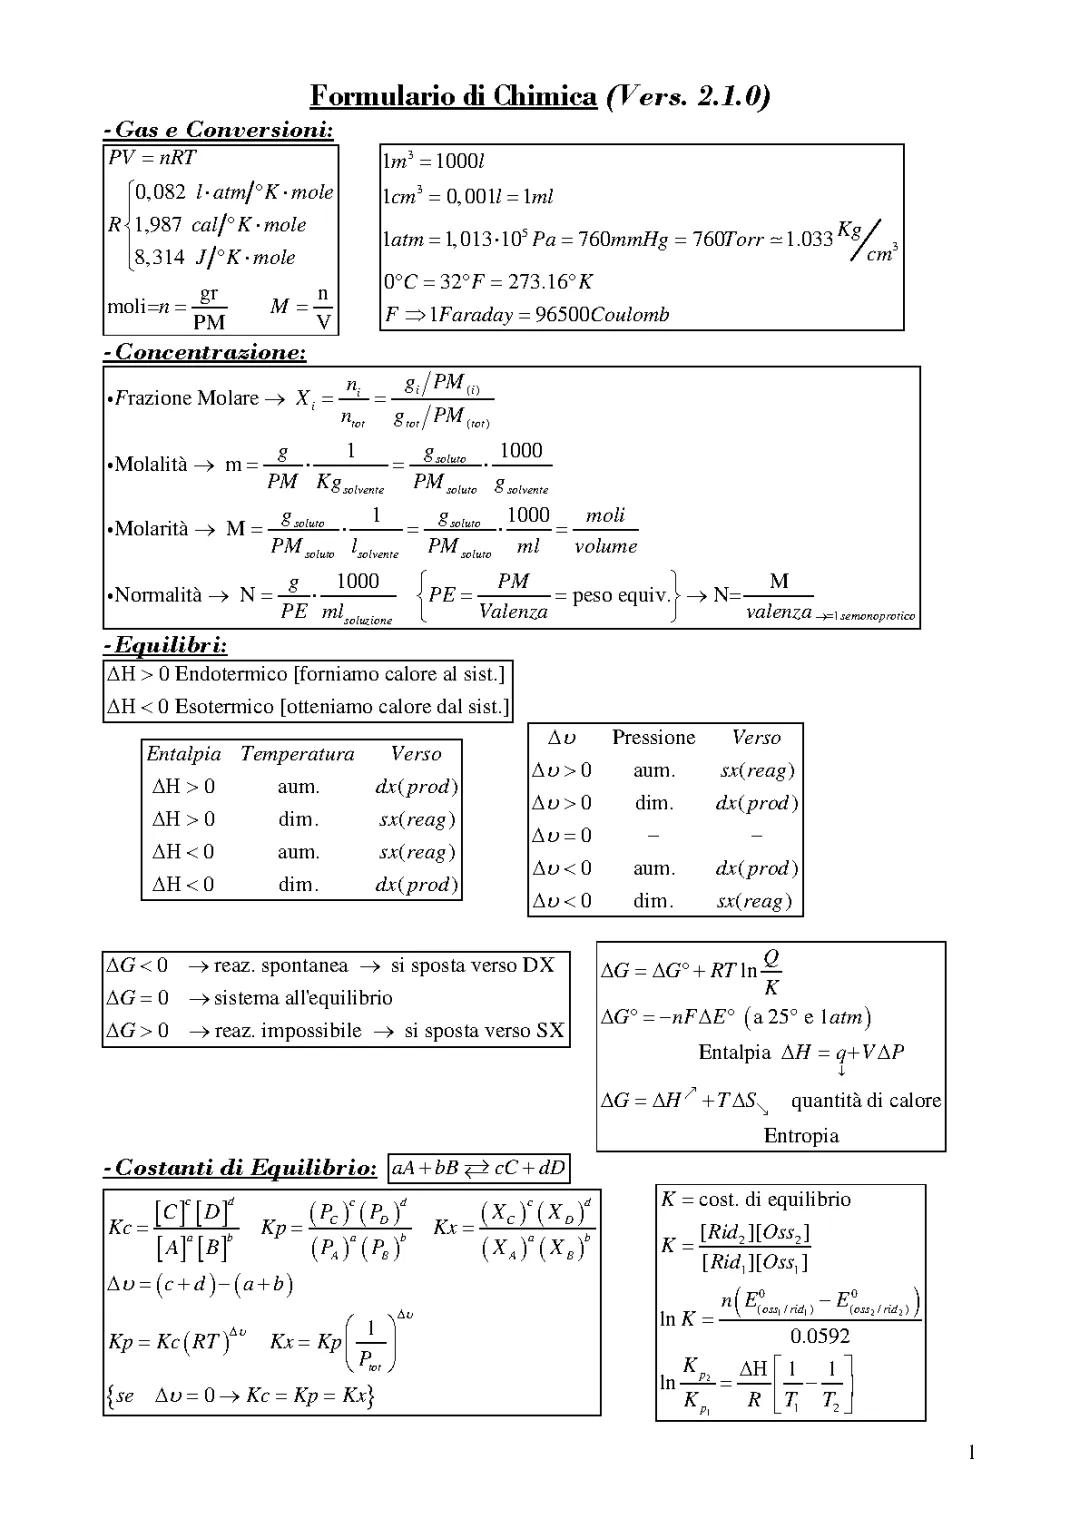 Formulario di Chimica (Vers. 2.1.0)
-Gas e Conversioni:
PV = nRT
R { 0,082 l·atm/°K·mole
1,987 cal/°K·mole
8,314 J/°K·mole
moli=n = gr/PM M = n/V
1m³ = 1000l
1cm³ = 0,001l = 1ml
1atm = 1,013·10⁵ Pa = 760mmHg = 760Torr ≃ 1.033 Kg/cm³
0°C = 32°F = 273.16°K
F ⇒ 1Faraday = 96500Coulomb
-Concentrazione:
•Frazione Molare → X_i = n_i/n_tot = (g_i/PM_(i))/(g_tot/PM_(tot))
•Molalità → m = g/PM · 1/Kg_solvente = g_soluto/PM_soluto · 1000/g_solvente
•Molarità → M = g_soluto/PM_soluto · 1/l_solvente = g_soluto/PM_soluto · 1000/ml = moli/volume
•Normalità → N = g/PE · 1000/ml_soluzione {PE = PM/Valenza = peso equiv.} → N= M/valenza →=1 se monoprotico
-Equilibri:
ΔH > 0 Endotermico [forniamo calore al sist.]
ΔH < 0 Esotermico [otteniamo calore dal sist.]
Entalpia Temperatura Verso
ΔH > 0 aum. dx(prod)
ΔH > 0 dim. sx(reag)
ΔH < 0 aum. sx(reag)
ΔH < 0 dim. dx(prod)
Δυ Pressione Verso
Δυ > 0 aum. sx(reag)
Δυ > 0 dim. dx(prod)
Δυ = 0 – –
Δυ < 0 aum. dx(prod)
Δυ < 0 dim. sx(reag)
ΔG < 0 → reaz. spontanea → si sposta verso DX
ΔG = 0 → sistema all'equilibrio
ΔG > 0 → reaz. impossibile → si sposta verso SX
ΔG = ΔG° + RT ln Q/K
ΔG° = −nFΔE° (a 25° e 1atm)
Entalpia ΔH = q+VΔP
↓
ΔG = ΔH↗ + TΔS↘ quantità di calore
Entropia
-Costanti di Equilibrio: aA + bB ⇄ cC + dD
Kc = [C]^c [D]^d / [A]^a [B]^b Kp = (P_C)^c (P_D)^d / (P_A)^a (P_B)^b Kx = (X_C)^c (X_D)^d / (X_A)^a (X_B)^b
Δυ = (c + d) − (a + b)
Kp = Kc(RT)^Δυ Kx = Kp(1/P_tot)^Δυ
{se Δυ = 0 → Kc = Kp = Kx}
K = cost. di equilibrio
K = [Rid₂][Oss₂] / [Rid₁][Oss₁]
ln K = n(E⁰_(oss₁/rid₁) − E⁰_(oss₂/rid₂)) / 0.0592
ln K_p₂/K_p₁ = ΔH/R [1/T₁ − 1/T₂]
1